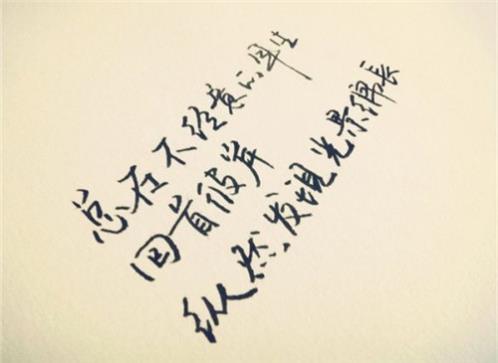 总在不经意的年生
回首彼岸
纵然发现光景绵長